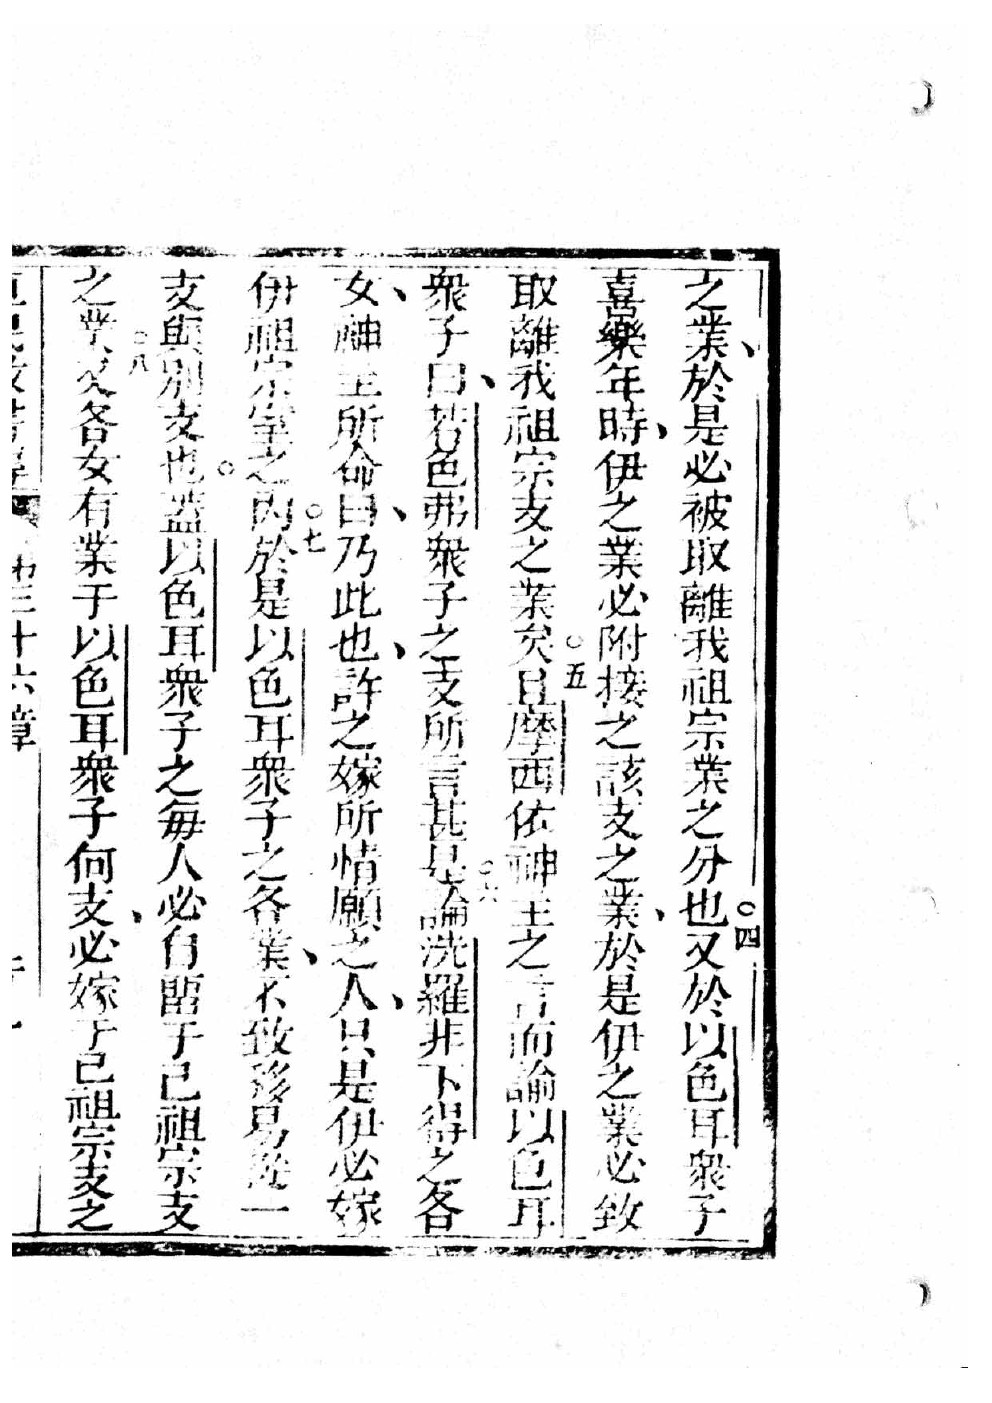 之業、於是必被取離我祖宗業之分也○四又於以色耳衆子
喜樂年時、伊之業必附接之該支之業、於是伊之業必致
取離我祖宗支之業矣○五且摩西依神主之言而諭以色耳
衆子曰、若色弗衆子之支所言甚是○六論洗羅非下得之各
女、神主所命曰、乃此也、許之嫁所情願之人、只是伊必嫁
伊祖宗室之內○七於是以色耳衆子之各業、不致移易從一
支與別支也○蓋以色耳衆子之每人必自留于己祖宗支
之業○八又各女有業于以色耳衆子何支、必嫁于己祖宗支之
第三十六章